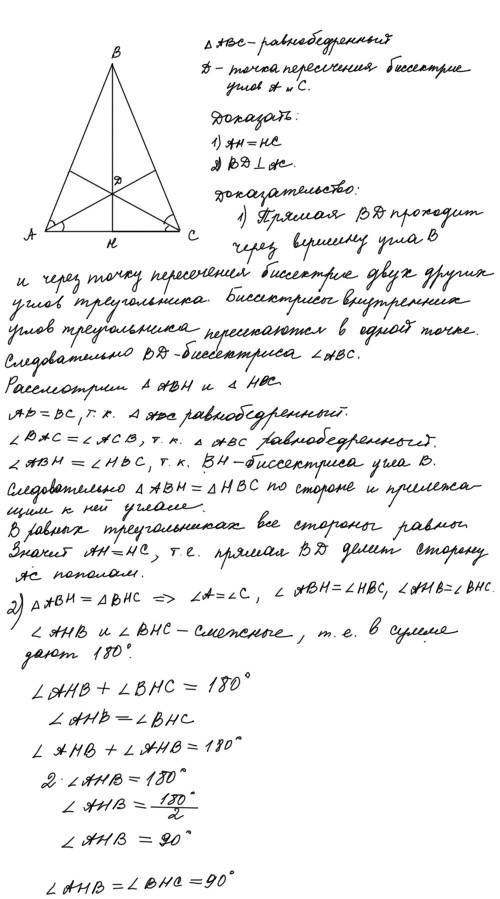 B
△ABC – равнобедренный
D – точка пересечения биссектрис
углов A и C.
Доказать:
1) AH = HC
2) BD ⊥ AC.
D
A
H
C
Доказательство:
1) Прямая BD проходит
через вершину угла B
и через точку пересечения биссектрис двух других
углов треугольника. Биссектрисы внутренних
углов треугольника пересекаются в одной точке.
Следовательно BD – биссектриса ∠ABC.
Рассмотрим △ ABH и △ HBC
AB = BC, т.к. △ ABC равнобедренный.
∠ BAC = ∠ ACB, т.к. △ ABC равнобедренный.
∠ ABH = ∠ HBC, т.к. BH – биссектриса угла B.
Следовательно △ ABH = △ HBC по стороне и прилежа-
щим к ней углам.
В равных треугольниках все стороны равны
Значит AH = HC, т.е. прямая BD делит сторону
AC пополам.
2) △ ABH = △ BHC => ∠A = ∠C, ∠ ABH = ∠HBC, ∠AHB = ∠ BHC.
∠ AHB и ∠ BHC – смежные, т.е. в сумме
дают 180°.
∠ AHB + ∠ BHC = 180°
∠ AHB = ∠ BHC
∠ AHB + ∠ AHB = 180°
2 · ∠ AHB = 180°
∠ AHB = 180°/2
∠ AHB = 90°
∠ AHB = ∠ BHC = 90°